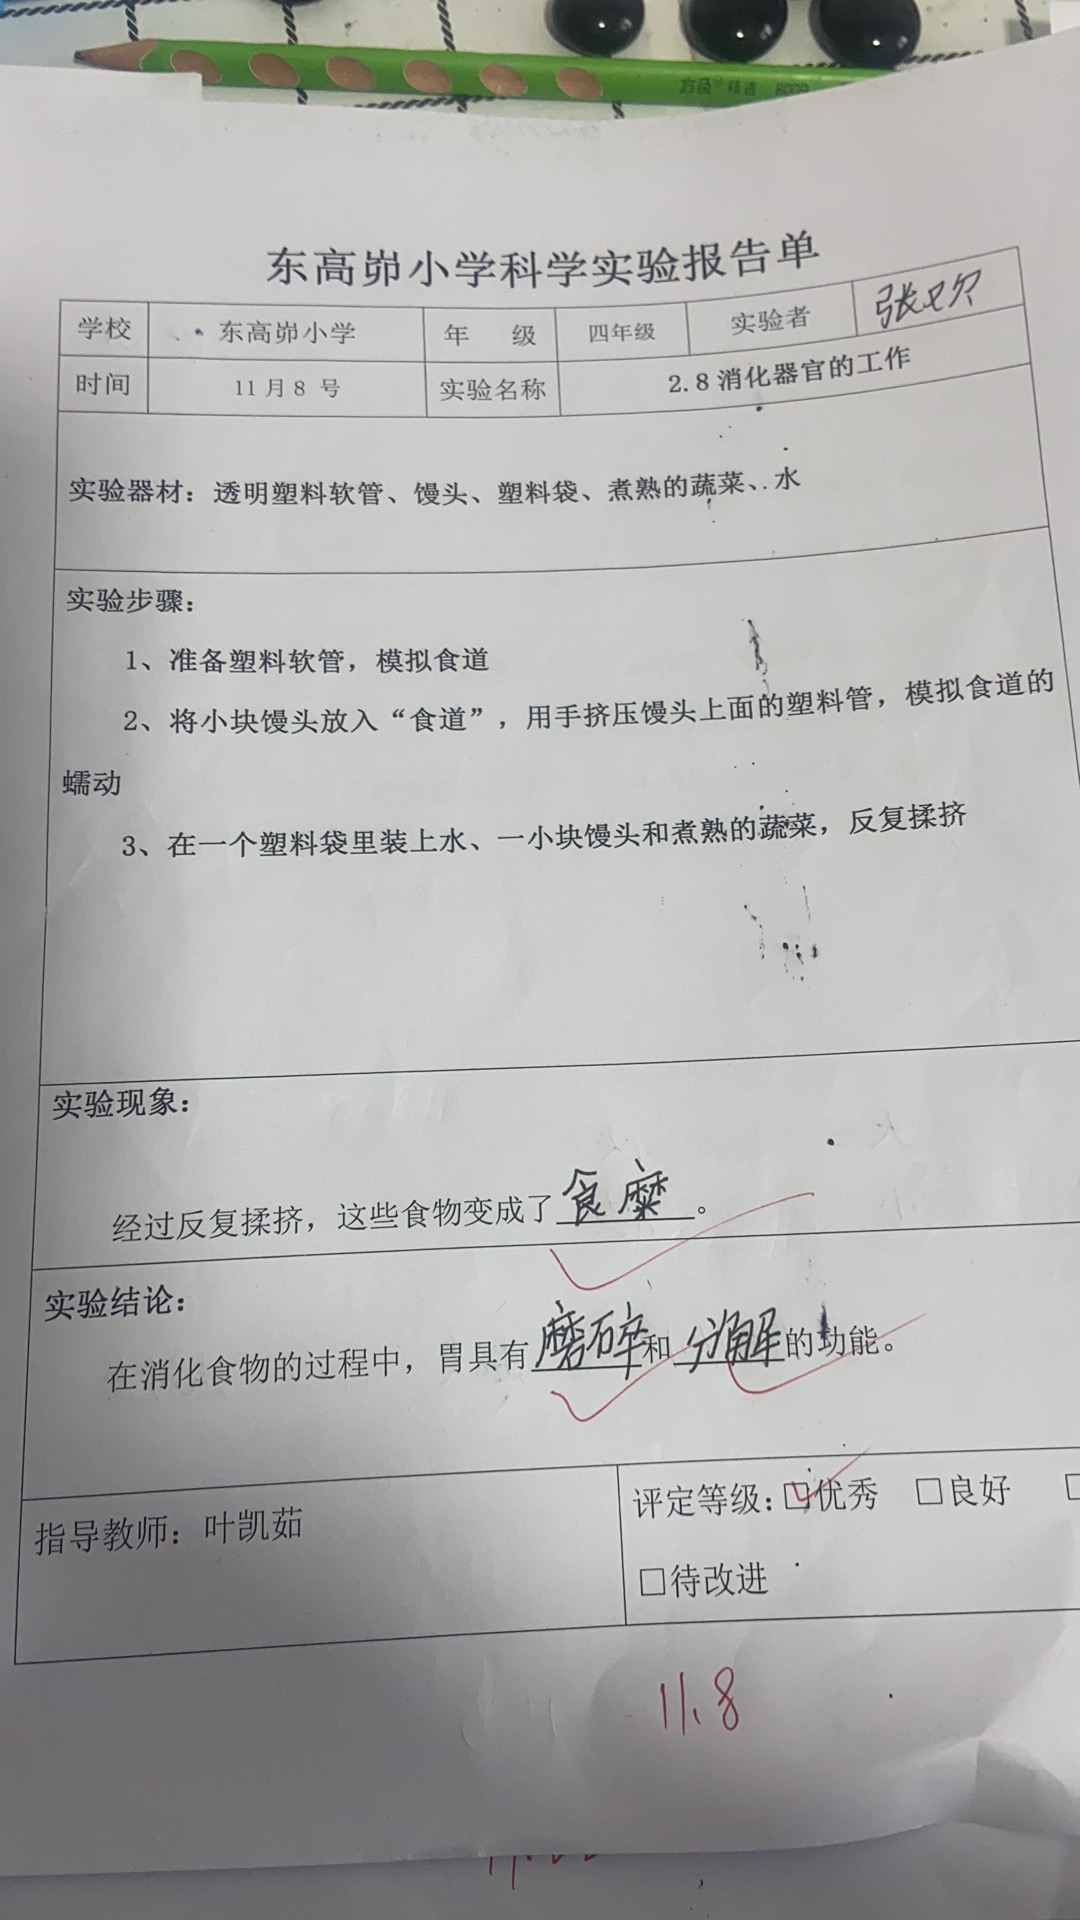 东高峁小学科学实验报告单
学校 东高峁小学 年 级 四年级 实验者 张
时间 11月8 号 实验名称 2.8消化器官的工作
实验器材：透明塑料软管、馒头、塑料袋、煮熟的蔬菜、水
实验步骤：
1、准备塑料软管，模拟食道
2、将小块馒头放入“食道”，用手挤压馒头上面的塑料管，模拟食道的
蠕动
3、在一个塑料袋里装上水、一小块馒头和煮熟的蔬菜，反复揉挤
实验现象：
经过反复揉挤，这些食物变成了食糜。
实验结论：
在消化食物的过程中，胃具有磨碎和分解的功能。
指导教师：叶凯茹
评定等级：□优秀 □良好 □
□待改进
11.8